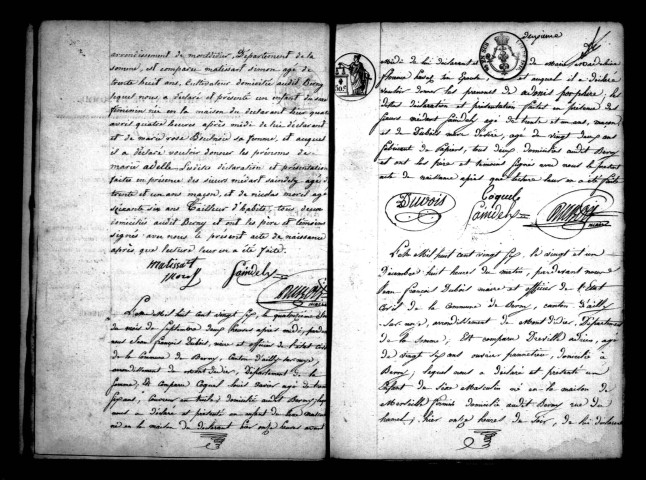 arrondissement de montdidier, Département de la
somme, est comparu matissart simon agé de
trente huit ans, Cultivateur domicilié audit Berny
lequel nous a déclaré et présenté un enfant du sexe
féminin né en la maison du déclarant hier quatre
aussi quatre heures après midi de lui déclarant
et de marie rose sa femme, et auquel
il a déclaré vouloir donner les prénoms de
marie adelle. Lesdites déclaration et présentation
faite en présence des sieurs médard saindely agé
trente et un ans maçon, et de nicolas morel agé
soixante six ans Tailleur d'habits, tous deux
domiciliés audit Berny et ont les père et témoins
signés avec nous le présent acte de naissance
après que lecture leur en a été faite.
matissart
morel Saindely
maire
L'an mil huit cent vingt six, le quatorzième
du mois de Septembre deux heures après midi, pardevant
nous Jean François Dubois, maire et officier de l'état civil
de la Commune de Berny, Canton d'ailly sur noye,
arrondissement de Montdidier, Département de la
Somme, Est Comparu Coquel Louis Xavier agé de trente
six ans, Couvreur en domicilié audit Berny, lequel
nous a déclaré et présenté un enfant du Sexe Masculin
né en la maison du déclarant hier onze heures avant
Deuxième
Midi de lui déclarant et de Marie
femme en et auquel il a déclaré
vouloir donner les prénoms de porphire; les
dites déclaration et présentation faites en présence des
sieurs médard Saindely agé de trente et un ans, maçon
et de Dubois agé de vingt deux ans
fabricant de papiers, tous deux domiciliés audit Berny
et ont les père et témoins signés avec nous le présent
acte de naissance après que lecture leur en a été faite
Dubois Coquel
Saindely
maire
L'an Mil huit cent vingt six, le vingt et un
Décembre huit heures du matin, pardevant nous
Jean François Dubois maire et officier de l'Etat
Civil de la Commune de Berny, canton d'ailly
sur noye, arrondissement de Montdidier, Département
de la Somme, Est comparu Dreville adrien, agé
de vingt six ans ouvrier papetier, domicilié à
Berny, lequel nous a déclaré et présenté un
Enfant du Sexe Masculin né en la maison de
domicilié audit Berny rue du
hamel, hier onze heures du soir, de lui déclarant